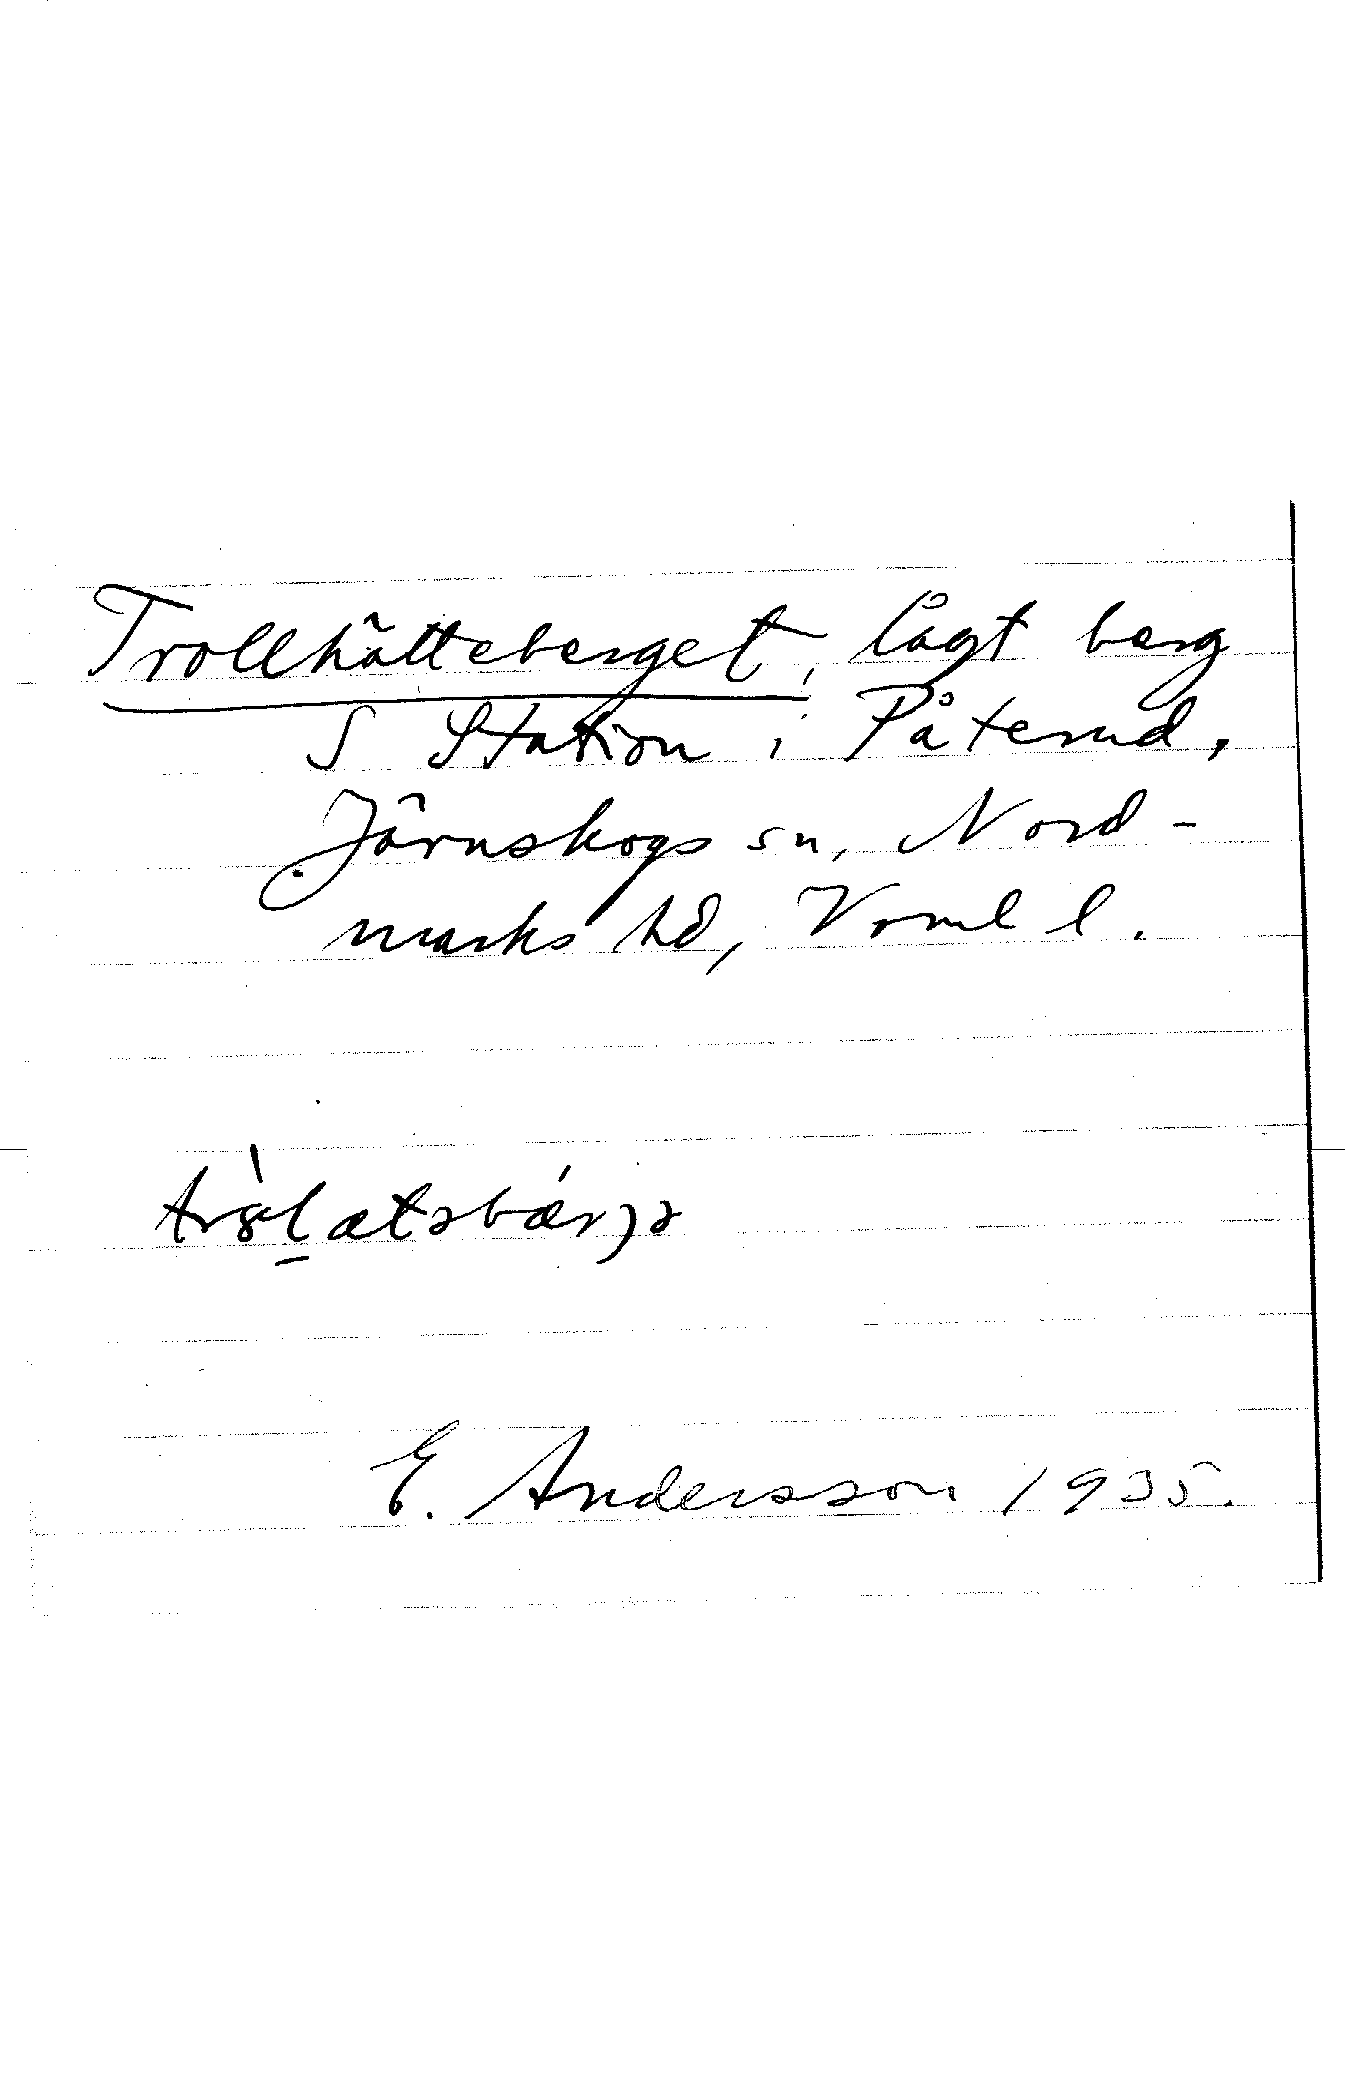 Trollhätteberget, lågt berg
S Station i Påterud,
Järnskogs sn, Nord-
marks hd, Vrml l.
E. Andersson 1935.